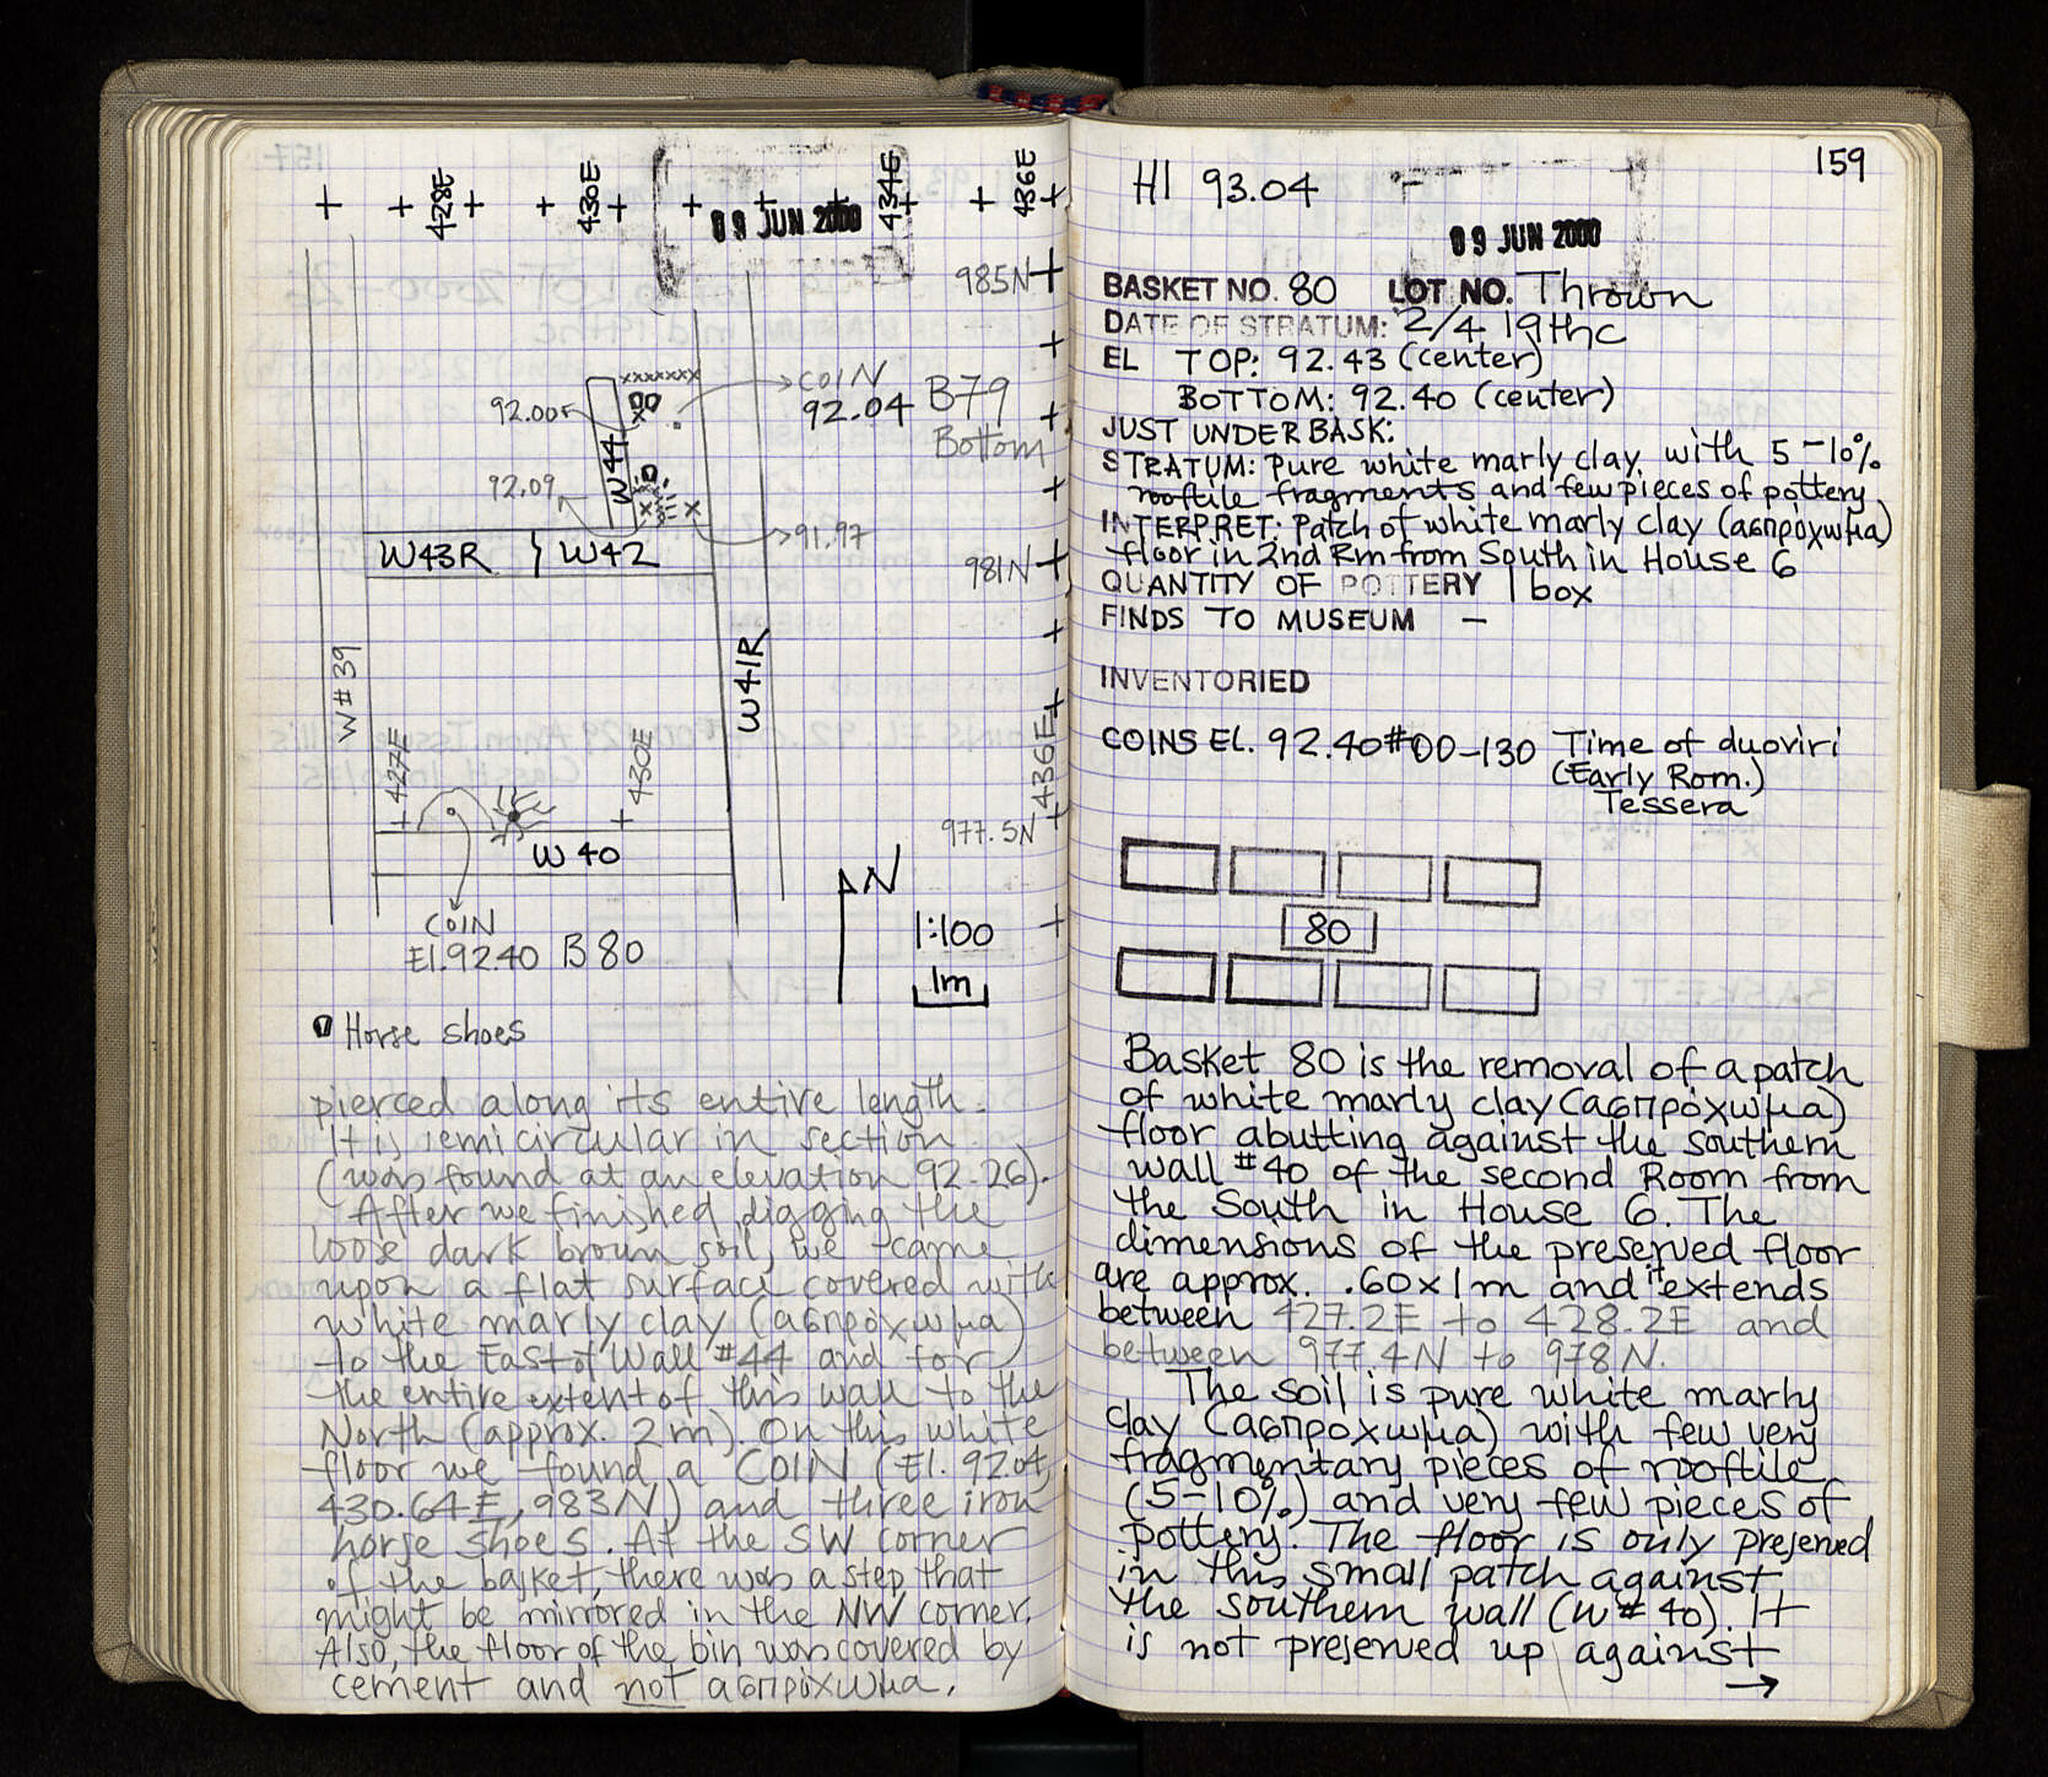 428E 430E 434E 436E
09 JUN 2000
985N
COIN
92.04 B79
Bottom
92.00
W44
92.09
91.97
W43R W42
981N
W#39
W41R
427E
430E
436E
977.5N
W40
N
COIN
El.92.40 B80
1:100
1m
Horse shoes
pierced along its entire length.
It is semicircular in section
(was found at an elevation 92.26).
After we finished digging the
loose dark brown soil, we came
upon a flat surface covered with
white marly clay (ασπρόχωμα)
to the East of Wall #44 and for
the entire extent of this wall to the
North (approx. 2m). On this white
floor we found a COIN (El. 92.04,
430.64E, 983N) and three iron
horse shoes. At the SW corner
of the basket, there was a step that
might be mirrored in the NW corner.
Also, the floor of the bin was covered by
cement and not ασπρόχωμα.
159
H1 93.04
09 JUN 2000
BASKET NO. 80 LOT NO. Thrown
DATE OF STRATUM: 2/4 19thc
EL TOP: 92.43 (center)
BOTTOM: 92.40 (center)
JUST UNDER BASK:
STRATUM: Pure white marly clay with 5-10%
rooftile fragments and few pieces of pottery
INTERPRET: Patch of white marly clay (ασπρόχωμα)
floor in 2nd Rm from South in House 6
QUANTITY OF POTTERY 1 box
FINDS TO MUSEUM —
INVENTORIED
COINS EL. 92.40 #00-130 Time of duoviri
(Early Rom.)
Tessera
80
Basket 80 is the removal of a patch
of white marly clay (ασπρόχωμα)
floor abutting against the southern
wall #40 of the second Room from
the South in House 6. The
dimensions of the preserved floor
are approx. .60x1m and it extends
between 427.2E to 428.2E and
between 977.4N to 978N.
The soil is pure white marly
clay (ασπροχωμα) with few very
fragmentary pieces of rooftile
(5-10%) and very few pieces of
pottery. The floor is only preserved
in this small patch against
the southern wall (W#40). It
is not preserved up against
→